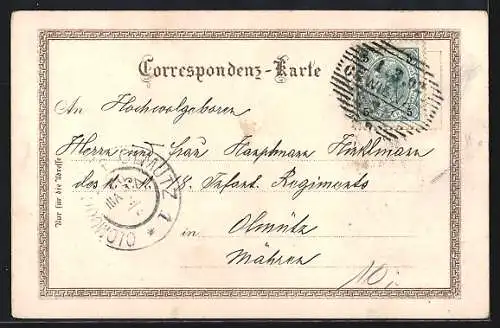 Correspondenz-Karte
An Hochwolgeboren
Herrn und Frau Hauptmann
des k. 18. Infant. Regiments
in Olmütz
Mähren
Nur für die Adresse
OLMÜTZ 1
5 5
10